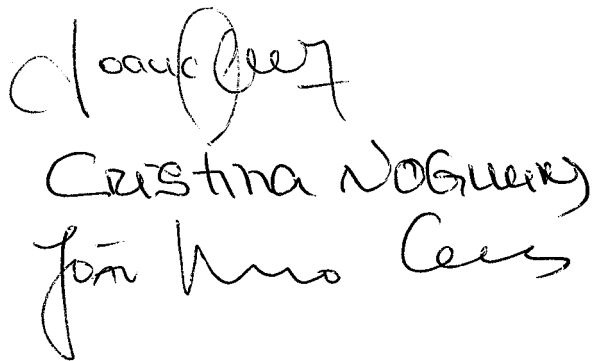 Joana Cruz
Cristina Nogueira
João Nuno